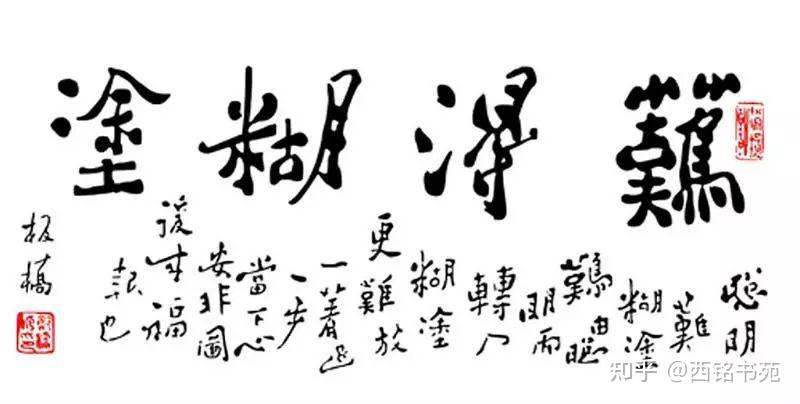 難得糊塗
聰明
難
糊塗
難由聰
明而
轉入
糊塗
更難放
一著退
一步
當下心
安非圖
後來福
報也
板橋
知乎 @西铭书苑